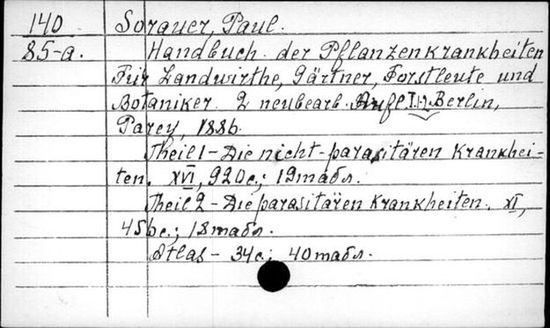 140 Sorauer, Paul.
85-a. Handbuch der Pflanzenkrankheiten
Für Landwirthe, Gärtner, Forstleute und
Botaniker. 2 neubearb. Aufl I-2 Berlin,
Parey, 1886.
Theil 1 - Die nicht-parasitären Krankhei-
ten. XVI, 920 с.; 19 табл.
Theil 2 - Die parasitären Krankheiten. XI,
456 с.; 18 табл.
Atlas - 34 с; 40 табл.